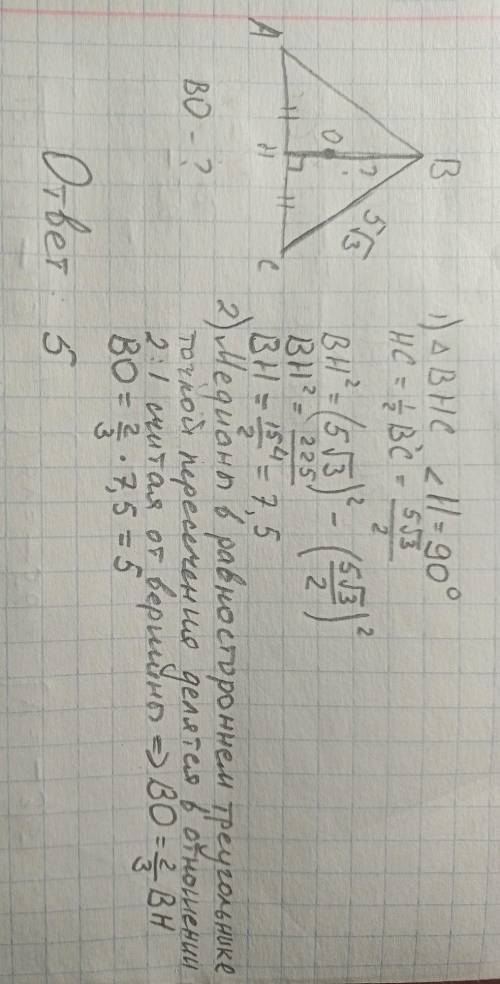 B
5√3
?
O
A
H
C
BO - ?
1) △ BHC < H = 90°
HC = 1/2 BC = 5√3/2
BH² = (5√3)² - (5√3/2)²
BH² = 225/4
BH = 15/2 = 7,5
2) Медианы в равностороннем треугольнике
точкой пересечения делятся в отношении
2:1 считая от вершины => BO = 2/3 BH
BO = 2/3 · 7,5 = 5
Ответ: 5